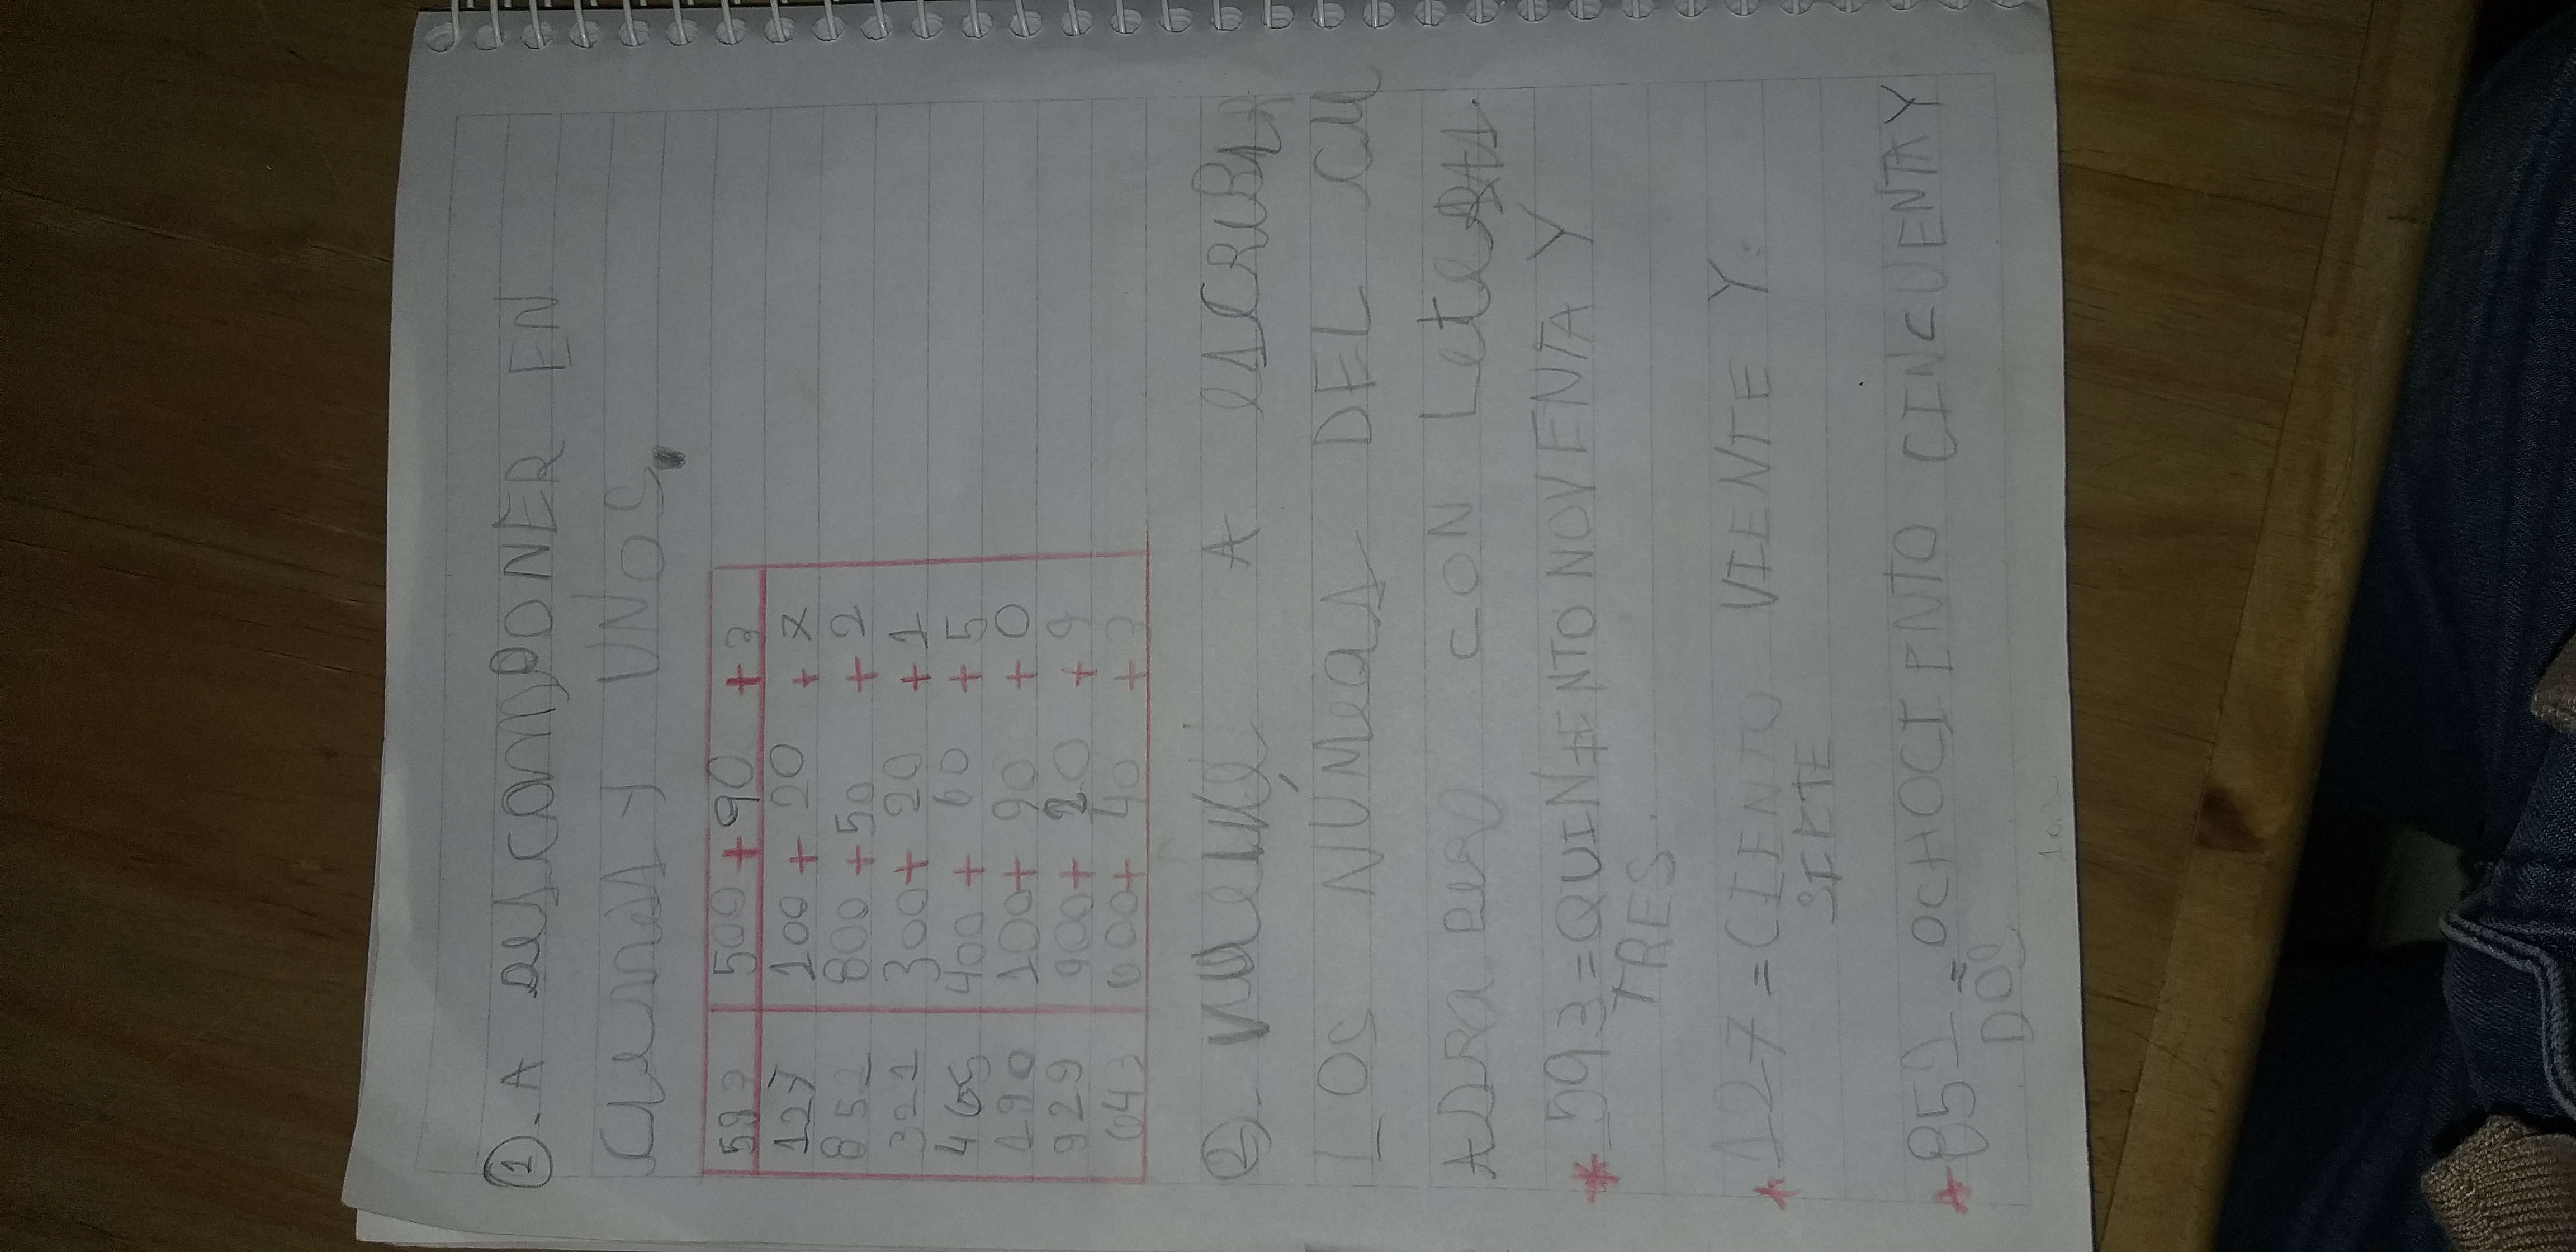 ①. A descomponer EN
cienes y UNOS.
593 500 + 90 + 3
127 100 + 20 + 7
852 800 + 50 + 2
321 300 + 20 + 1
465 400 + 60 + 5
190 100 + 90 + 0
929 900 + 20 + 9
643 600 + 40 + 3
②- vuelvé A escribir
LOS NÚMeros DEL cu
ADRa pero CON LeteRAs.
* 593 = QUINIENTO NOVIENTA Y
TRES.
* 127 = CIENTO VIENTE Y:
SIETE
* 852 = OCHOCIENTO CINCUENTA Y
DOS